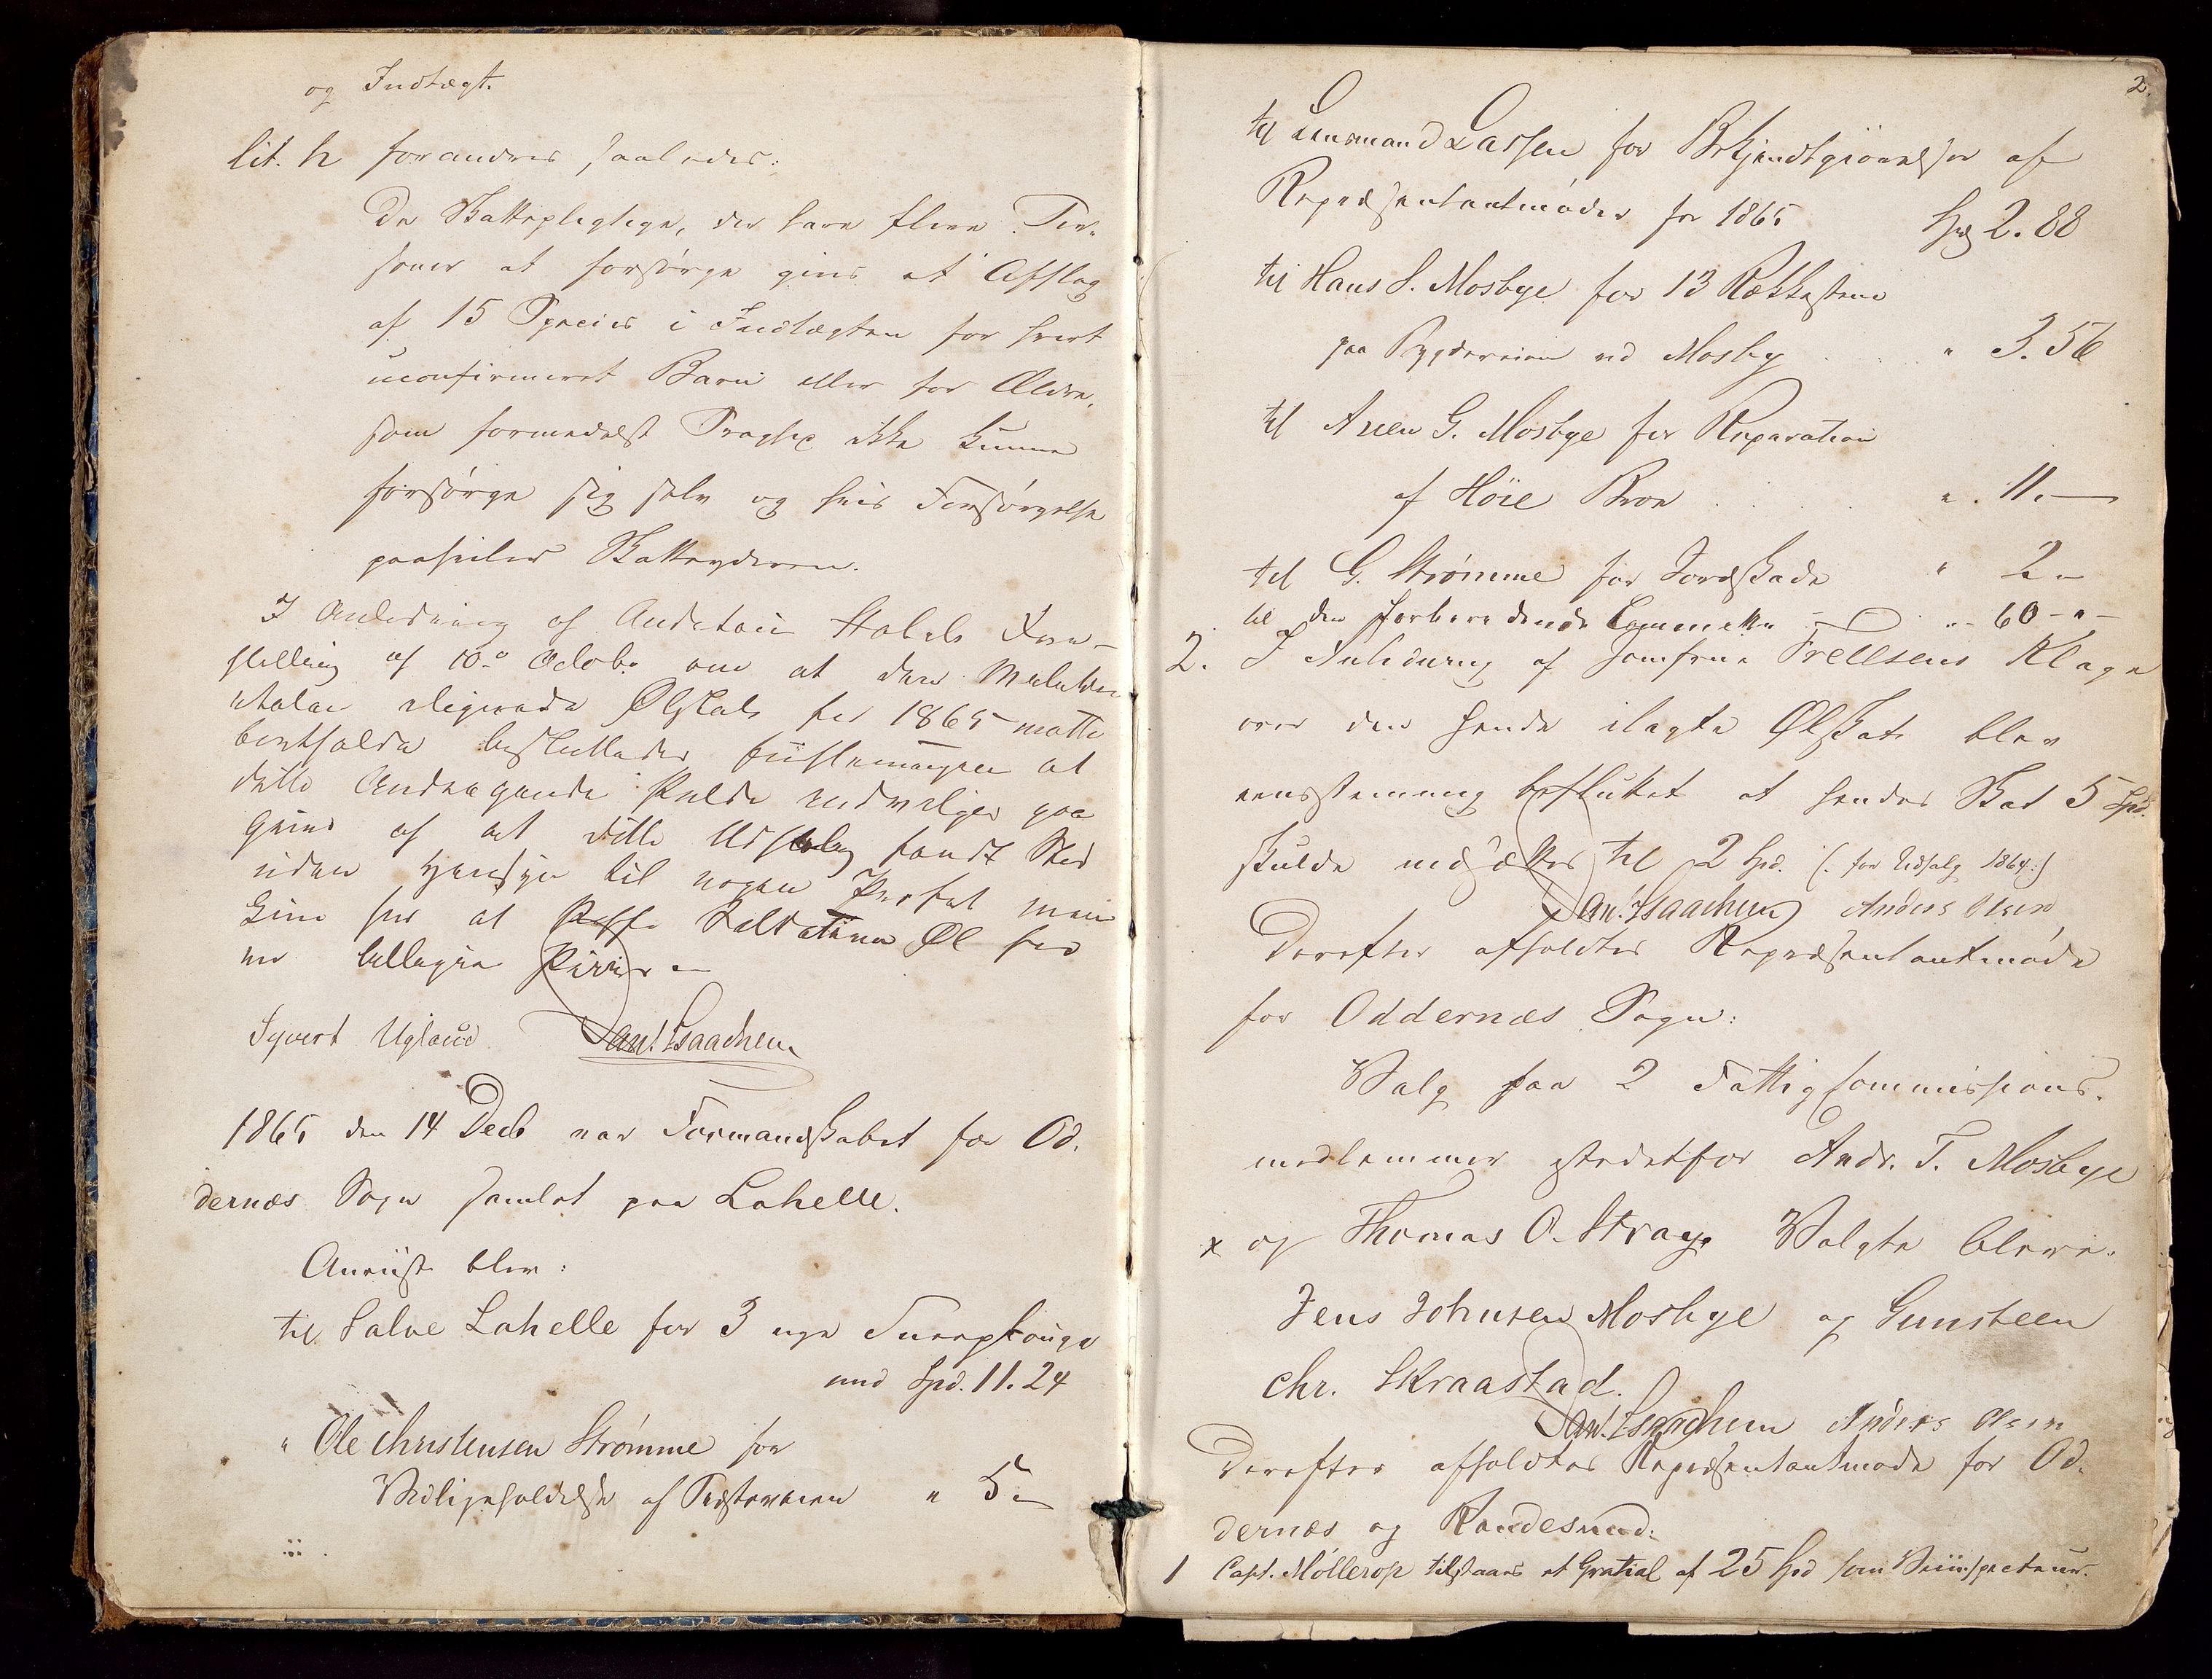 og Indtægt.
lit. h forandres saaledes:
De Skattepligtige, der have flere Per-
soner at forsørge gives et Afslag
af 15 Species i Indtægten for hvert
uconfirmeret Barn eller for Ældre,
som formedelst Svaghed ikke kunne
forsørge sig selv og hvis Forsørgelse
paahviler Skatteyderen.
I Anledning af
stilling af 10de Octobr om at den
Ølskat for 1865 maatte
bortfalde besluttedes eenstemmigen at
dette Andragende skulde
Grund af at dette Udsalg fandt Sted
uden Hensyn til nogen Profit men
kun for at Folk Øl for
en billigere Priis.
Syvert Ugland Dan! Isaachsen
1865 den 14 Decb var Formandskabet for Od-
dernæs Sogn samlet paa Lahelle.
Anviist blev:
til Salve Lahelle for 3 nye Sneeplouge
med Spd. 11. 24
" Ole Christensen Strømme for
Vedligeholdelse af " 5 —
2.
til Lensmand Lassen for Bekjendtgjørelser af
Repræsentantmøder for 1865 Spd 2. 88
til Hans S. Mosbye for 13 Rækkestene
paa Bygdeveien ved Mosby " 3. 56
til Aven G. Mosbye for Reparation
af Høie Broe " 11. —
til G. Strømme for Jordskade " 2 —
til den forberedende Committe " 60 - " -
2. I Anledning af Jomfrue Frellsens Klage
over den hende ilagte Ølskat blev
eensstemmig besluttet at hendes Skat 5 Spd.
skulde nedsættes til 2 Spd. (: for Udsalg 1864 :)
Dan! Isaachsen Anders Olsen
Derefter afholdtes Repræsentantmøde
for Oddernæs Sogn:
Valg paa 2 Fattigcommissions-
medlemmer istedetfor Andr. T. Mosbye
x og Thomas O. Straye. Valgte bleve:
Jens Johnsen Mosbye og Gunsteen
Chr. Skraastad.
Dan! Isaachsen Anders Olsen
Derefter afholdtes Repræsentantmøde for Od-
dernæs og Randesund:
1 Capt. Møllerop tilstaaes et Gratial af 25 Spd som Veiinspecteur.